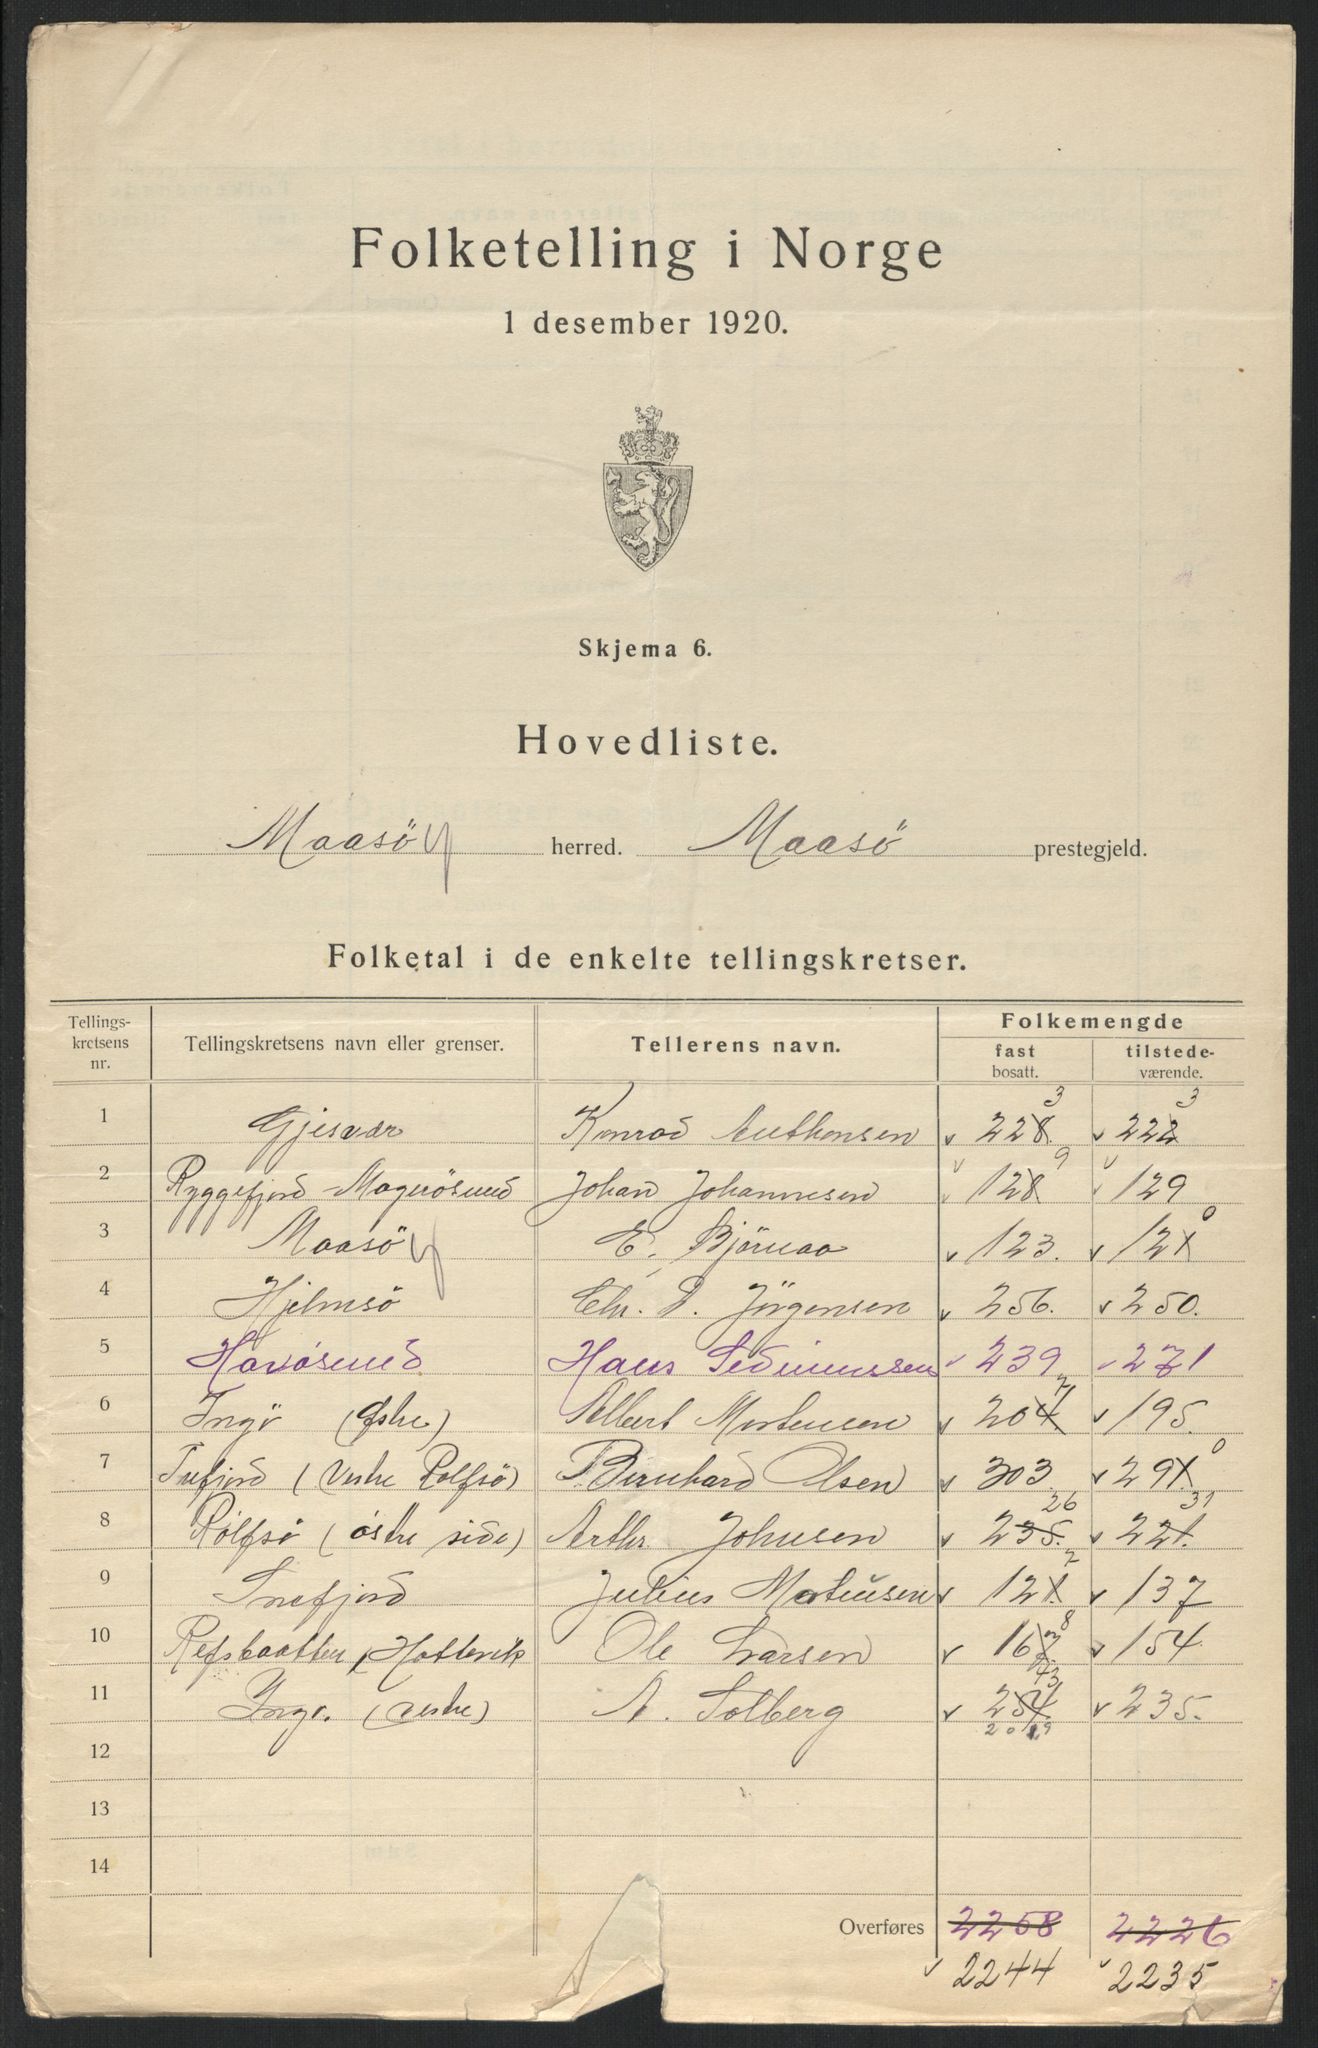 Folketelling i Norge
1 desember 1920.
Skjema 6.
Hovedliste.
Maasöy herred. Maasö prestegjeld.
Folketal i de enkelte tellingskretser.
Tellings-kretsens nr. Tellingskretsens navn eller grenser. Tellerens navn. Folkemengde fast bosatt. tilstede-værende.
1 Gjesvær Konrad Anthonsen 228 3 222 3
2 Ryggefjord - Magerösund Johan Johannesen 128 9 129
3 Maasöy E. Björnaa 123. 121 0
4 Hjelmsö Chr. D. Jörgensen 256. 250.
5 Havösund Hans 239 271
6 Ingö (østre) Albert Mortensen 204 7 195.
7 Tufjord (vestre Rolfsö) Bernhard Olsen 303 291. 0
8 Rolfsö (östre side) Arthr. Johnsen 235. 26 221. 31
9 Snefjord Julius Mortensen 121. 2 137
10 Refsbaatten, Hatterik Ole Larsen 167 8 154.
11 Ingö. (vestre) A. Solberg 254. 43 235.
12
13
14
Overføres 2258 2226
2244 2235